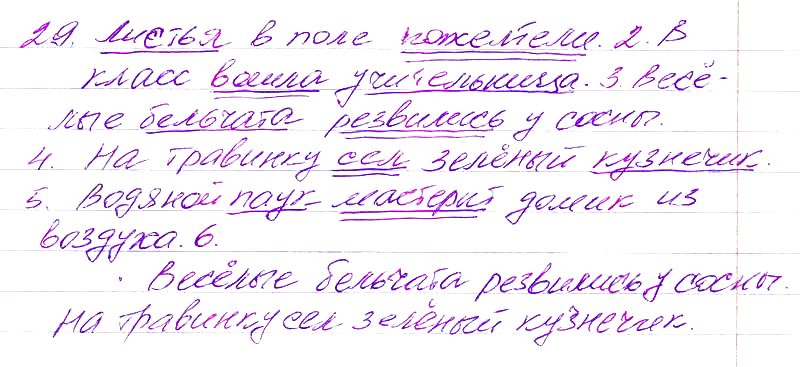 29. Листья в поле пожелтели. 2. В
класс вошла учительница. 3. Весё-
лые бельчата резвились у сосны.
4. На травинку сел зелёный кузнечик.
5. Водяной паук мастерит домик из
воздуха. 6.
Весёлые бельчата резвились у сосны.
На травинку сел зелёный кузнечик.